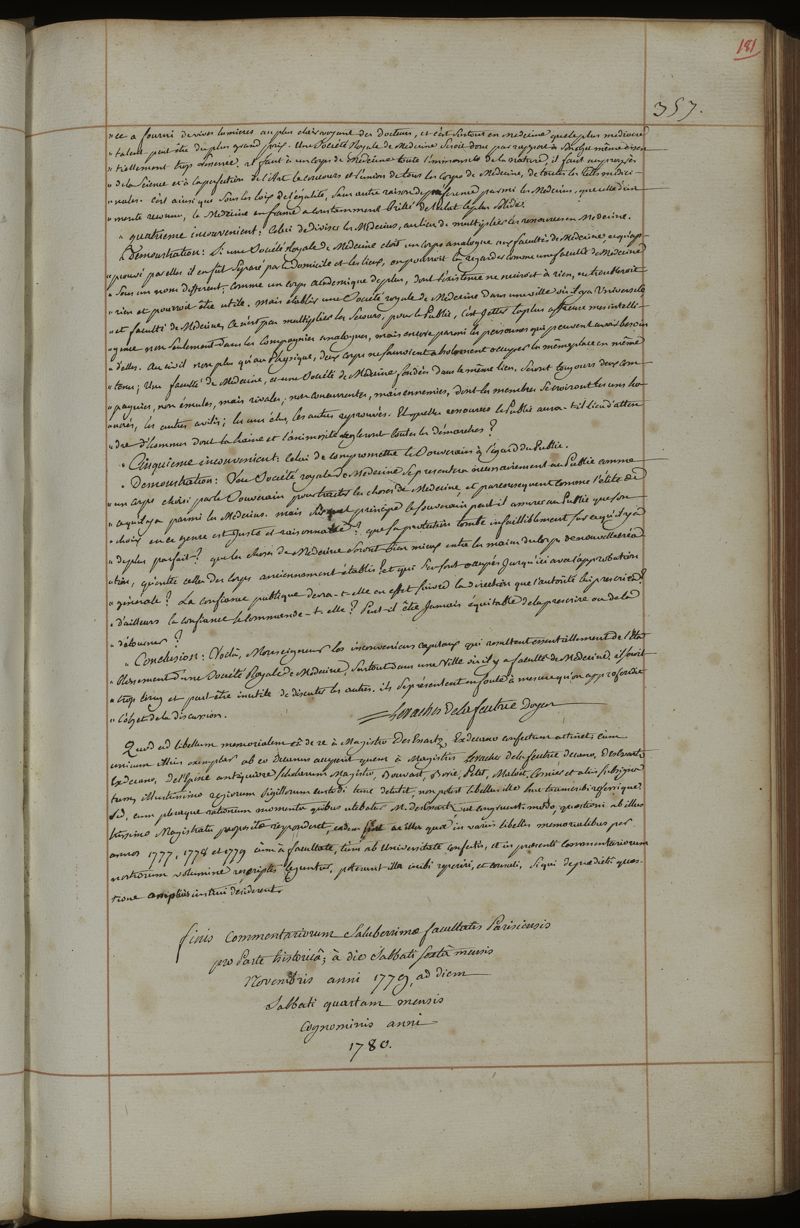 181
357.
" ce a fourni de vives lumieres au plus clairvoyant des Docteurs, et c'est surtout en Medecine que le plus mediocre
" talent peut être du plus grand prix. Une Société Royale de Medecine seroit donc par rapport à l'objet même essen
" tiellement trop bornée. il faut à un corps de Medecine toute l'immensité de la nature, il faut au progrès
" de la Science et à la perfection de l'Art le concours et l'union de tous les Corps de Medecine, de toutes les Ecoles médici
" nales. c'est ainsi que sous les loix de l'égalité, sans autre raison de préférence parmi les Medecins, que celle d'un
" merite reconnu, la Medecine en france a constamment brillé de l'éclat le plus solide.
" quatrieme inconvenient: celui de diviser les Médecins, au lieu de multiplier les ressources en Medecine.
" Démonstration: Si une Société Royale de Medecine étoit un corps analogue aux facultés de Medecine, et qu'ap
" prouvé par elles il en fut séparé par le domicile et les lieux, on pourroit la regarder comme une faculté de Medecine
" sous un nom different, comme un corps académique de plus, dont l'existence ne nuiroit à rien, ne troubleroit
" rien et pourroit être utile. mais établir une Société royale de Medecine dans une ville où il y a Université
" et faculté de Medecine, ce n'est pas multiplier les secours pour le Public, c'est jetter la plus affreuse mesintelli
" gence non seulement dans les Compagnies analogues, mais encore parmi les personnes qui peuvent avoir besoin
" d'elles. Au civil non plus qu'au Physique, deux corps ne sauroient absolument occuper la même place en même
" tems; Une faculté de Medecine, et une Société de Medecine fondées dans le même lieu, seront toujours deux com
" pagnies, non émules, mais rivales; non concurrentes, mais ennemies, dont les membres se croiront les uns ho
" norés, les autres avilis; les uns élus, les autres reprouvés. Et quelles ressources le Public aura-t-il lieu d'atten
" dre d'hommes dont la haine et l'animosité regleront toutes les démarches?
" Cinquieme inconvenient: Celui de compromettre le Souverain à l'égard du Public.
" Démonstration: Une Société royale de Medecine se presentera nécessairement au Public comme
" un corps choisi par le Souverain pour traiter les choses de Medecine, et par consequent comme l'élite de
" ce qu'il y a parmi les Médecins. mais sur quel principe le Souverain peut-il assurer au Public que son
" choix en ce genre est juste et raisonnable? que sa protection tombe infailliblement sur ce qu'il y a
" de plus parfait? que les choses de Medecine seront bien mieux entre les mains du corps de nouvelle créa
" tion, qu'entre celles des corps anciennement établis, et qui s'en sont occupés jusqu'ici avec l'approbation
" générale? La confiance publique devra-t-elle en effet suivre la direction que l'autorité lui prescrira?
" d'ailleurs la confiance se commande-t-elle? Peut-il être jamais équitable de la prescrire ou de la
" détourner?
" Conclusion: Voilà, Monseigneur les inconveniens capitaux qui resultent essentiellement de l'Eta
" blissement d'une Société Royale de Medecine, surtout dans une Ville où il y a faculté de Medecine. il seroit
" trop long et peut-être inutile de discuter les autres. ils se présentent en foule à mesure qu'on approfondit
" l'objet de la discussion.
Levacher de la feutrie Doyen
Quod ad libellum memorialem eâ de re à Magistro DesEssartz Exdecano confectum attinet, cùm
unicum illius exemplar ab eo Decanus acceperit quem à Magistris Levacher de la feutrie decano, Desessartz
Exdecano, de l'Epine antiquiore scholarum Magistro, Bouvart, Borie, Petit, Maloet, et aliis subsigna
tum, illustrissimo regiorum sigillorum custodi tunc detulit, non potest libellus ille huc transcribi referrique.
Sed, cum pleraque rationum momenta quibus utebatur M. desEssartz ut congruenti modo, quæstioni ab illus
trissimo Magistratu propositæ responderet, eadem sint ac illa quæ in variis libellis memorialibus per
annos 1777, 1778 et 1779 cùm à facultate, tùm ab Universitate confectis, et in præsenti Commentariorum
nostrorum volumine rescriptis leguntur, poterunt illa inibi reperiri, et consuli, si qui de prædictâ quæs
tione ampliùs instrui desiderent.
finis Commentariorum Saluberrimæ facultatis Parisiensis
pro Parte historicâ; à die Sabbati sextâ mensis
Novembris anni 1779, ad diem
Sabbati quartam mensis
Cognominis anni
1780.